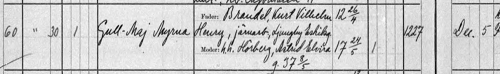 Fader: Brandel, Kurt Vilhelm 12 26/4
60 " 30 1 Gull-Maj Myrna Henry, järnarb., Ljungby 1 1227 Dec. 5
Moder: h.h. Hörberg, Astrid Elvira 17 24/5 1
g. 37 8/5